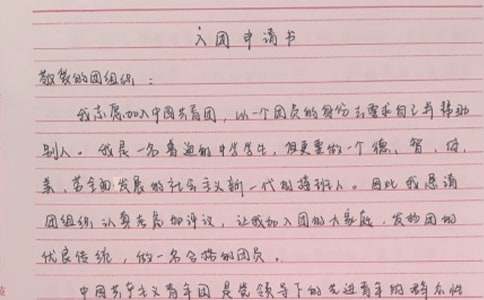 入团申请书
敬爱的团组织：
我志愿加入中国共青团，以一个团员的身份去要求自己与帮助
别人。我是一名普通的中学学生，但更要做一个德、智、体、
美、劳全面发展的社会主义新一代的接班人。因此我恳请
团组织认真考虑加评议，让我加入团的大家庭，发扬团的
优良传统，做一名合格的团员。
中国共产主义青年团是党领导下的先进青年的群众性